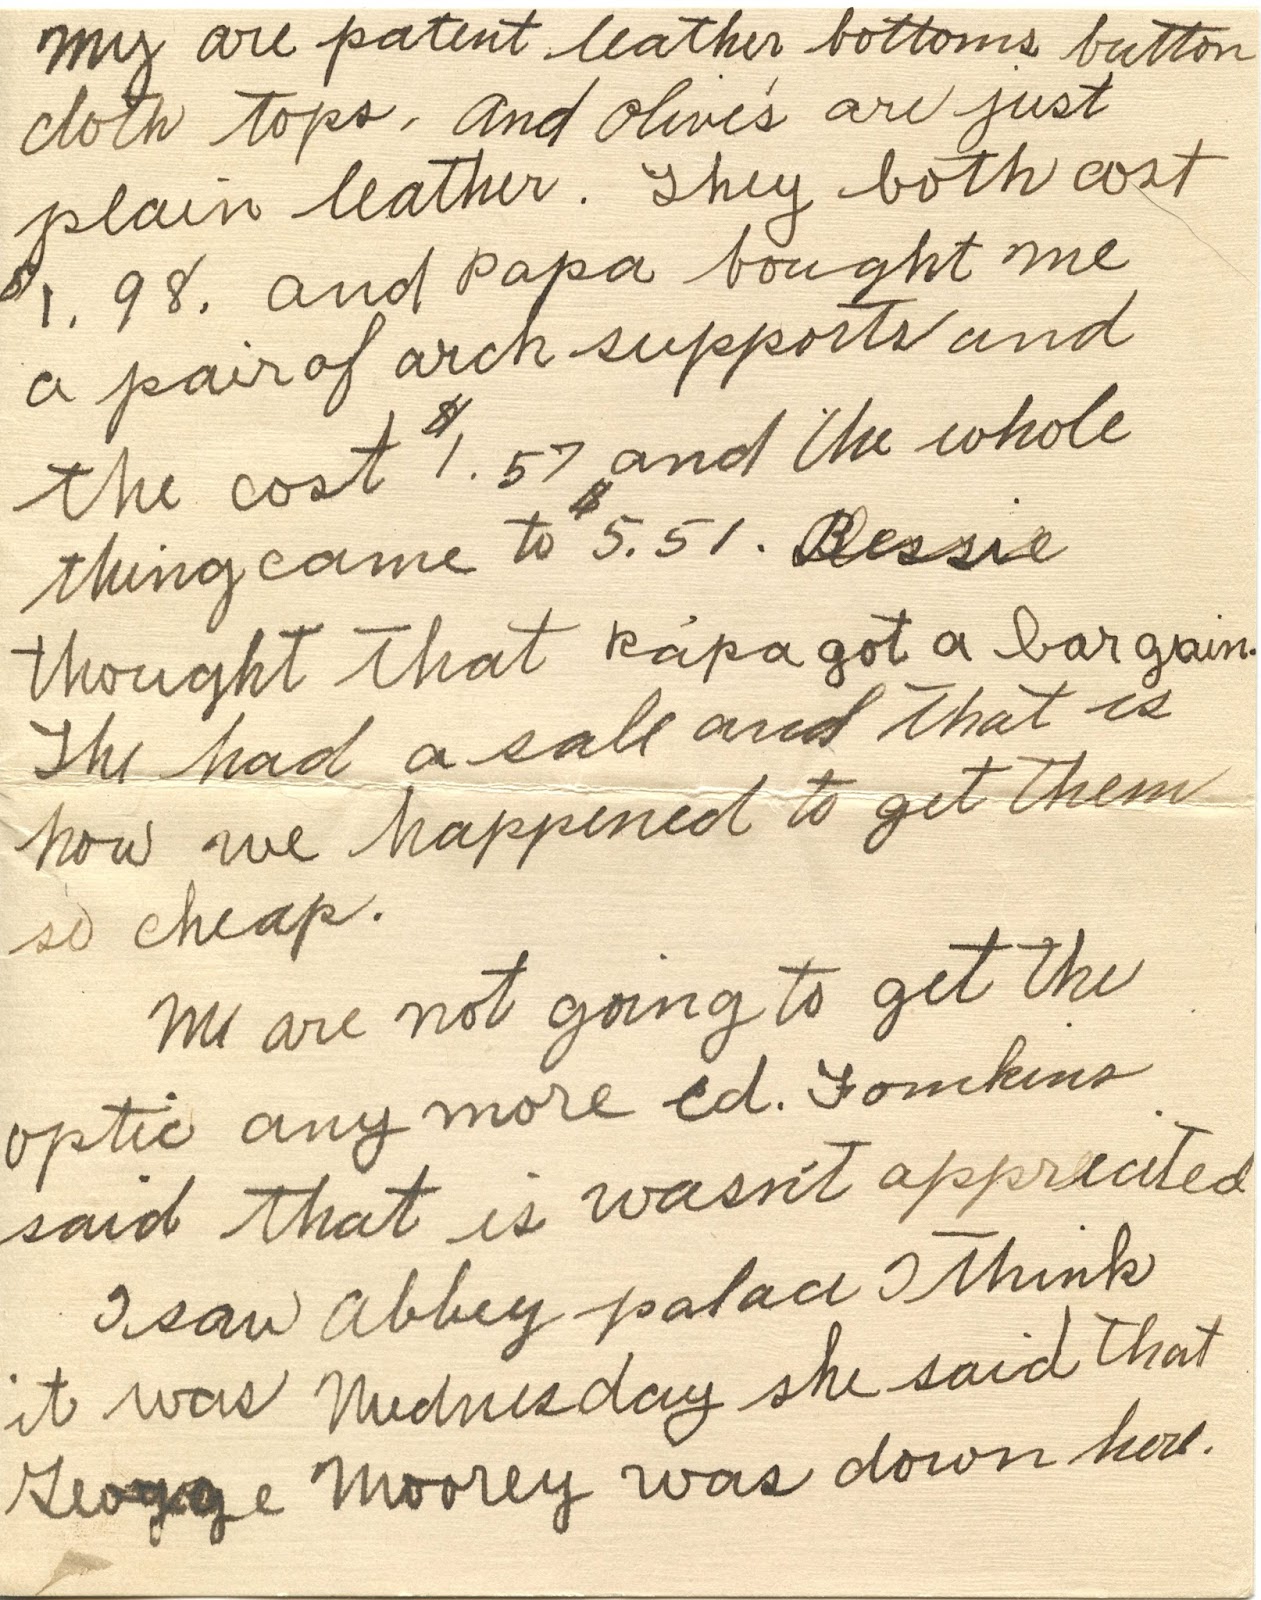 My are patent leather bottoms button
cloth tops. And Olive's are just
plain leather. They both cost
$1.98. and Papa bought me
a pair of arch supports and
the cost $1.57 and the whole
thing came to $5.51. Bessie
thought that Papa got a bargain.
The had a sale and that is
how we happened to get them
so cheap.
We are not going to get the
optic any more ed. Tomkins
said that is wasn't appreciated
I saw Abbey palace I think
it was Wednesday she said that
George Moorey was down here.